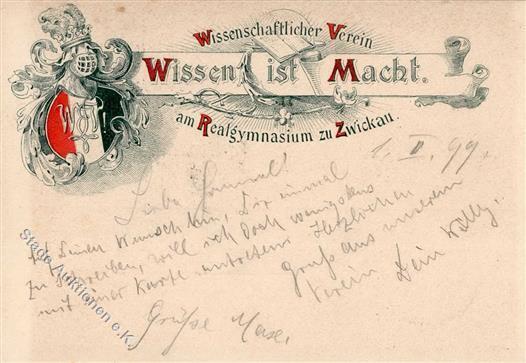 Wissenschaftlicher Verein
Wissen ist Macht.
am Realgymnasium zu Zwickau.
1. II. 99.
Lieber
Deinen Wunsch hin, Dir einmal
zu schreiben, will ich doch wenigstens
mit einer Karte antreten. Herzlichen
Gruß aus unserem
Verein Dein Willy.
Grüße
Stade Auktionen e.K.